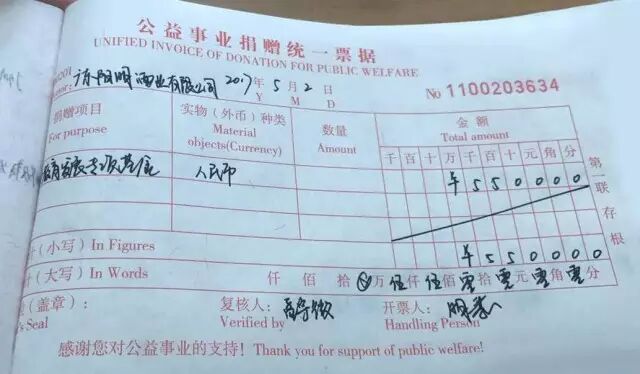 公益事业捐赠统一票据
UNIFIED INVOICE OF DONATION FOR PUBLIC WELFARE
酒业有限公司 2017年 5月 2日
Y M D
No 1100203634
捐赠项目 实物（外币）种类 数量 金额
For purpose Material Amount Total amount
objects(Currency) 千百十万千百十元角分
教育发展专项基金 人民币 ¥550000
（小写）In Figures ¥550000
（大写）In Words 仟 佰 拾 万 伍仟 伍佰 零拾 零元 零角 零分
（盖章）: 复核人: 开票人:
's Seal Verified by Handling Person
感谢您对公益事业的支持！Thank you for support of public welfare!
第一联存根